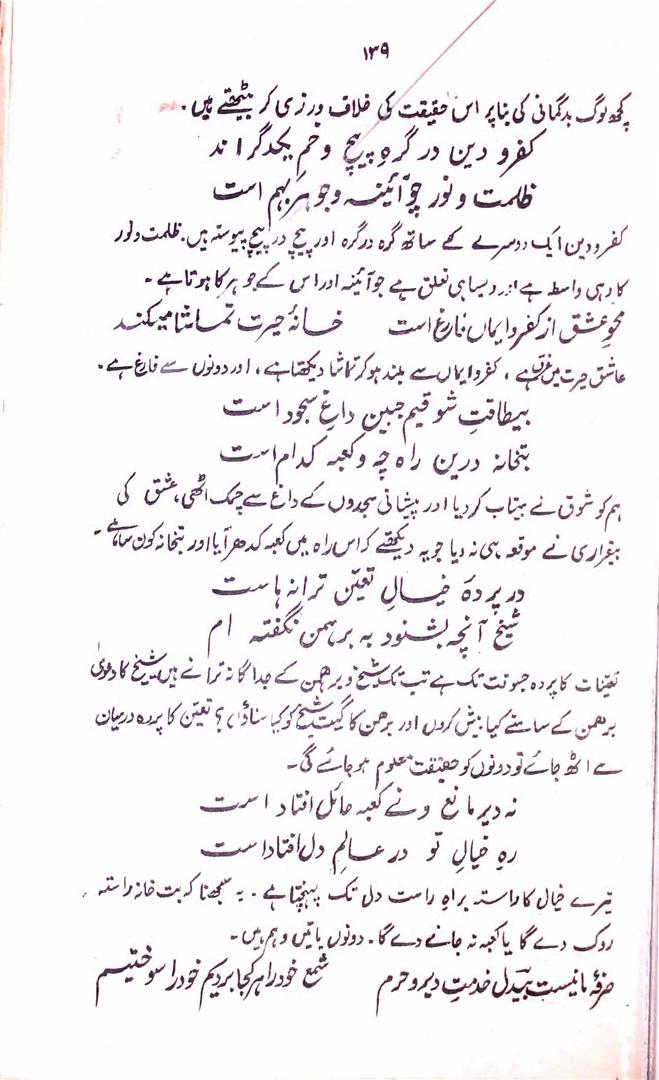 ۱۳۹
کچھ لوگ بدگمانی کی بنا پر اس حقیقت کی خلاف ورزی کر بیٹھتے ہیں۔
کفر و دین در گرہِ پیچ و خم یکدگر اند
ظلمت و نور چو آئینہ و جوہر بہم است
کفر و دین ایک دوسرے کے ساتھ گرہ در گرہ اور پیچ در پیچ پیوستہ ہیں۔ ظلمت و نور
کا وہی واسطہ ہے اور ویسا ہی تعلق ہے جو آئینہ اور اس کے جوہر کا ہوتا ہے۔
محو عشق از کفر و ایماں فارغ است خانۂ حیرت تماشا میکند
عاشق حیرت میں غرق ہے، کفر و ایماں سے بلند ہو کر تماشا دیکھتا ہے، اور دونوں سے فارغ ہے۔
بیطاقتِ شوقیم جبین داغِ سجود است
بتخانہ درین راہ چہ و کعبہ کدام است
ہم کو شوق نے بیتاب کر دیا اور پیشانی سجدوں کے داغ سے چمک اٹھی، عشق کی
بیقراری نے موقعہ ہی نہ دیا جو یہ دیکھتے کہ اس راہ میں کعبہ کدھر آیا اور بتخانہ کون سا ہے۔
در پردۂ خیالِ تعیّن ترانہ ہاست
شیخ آنچہ بشنود بہ برہمن نگفتہ ام
تعینات کا پردہ جب تک ہے تب تک شیخ و برھمن کے جداگانہ ترانے ہیں، شیخ کا دعویٰ
برھمن کے سامنے کیا پیش کروں اور برھمن کا گیت شیخ کو کیا سناؤں؟ تعیّن کا پردہ درمیان
سے اٹھ جائے تو دونوں کو حقیقت معلوم ہو جائے گی۔
نہ دیر مانع و نے کعبہ حائل افتاد است
رہِ خیالِ تو در عالمِ دل افتاد است
تیرے خیال کا راستہ براہِ راست دل تک پہنچتا ہے۔ یہ سمجھنا کہ بت خانہ راستہ
روک دے گا یا کعبہ نہ جانے دے گا۔ دونوں باتیں وہم ہیں۔
صرفۂ ما نیست بیدل خدمتِ دیر و حرم شمع خود را ہر کجا بردیم خود را سوختیم